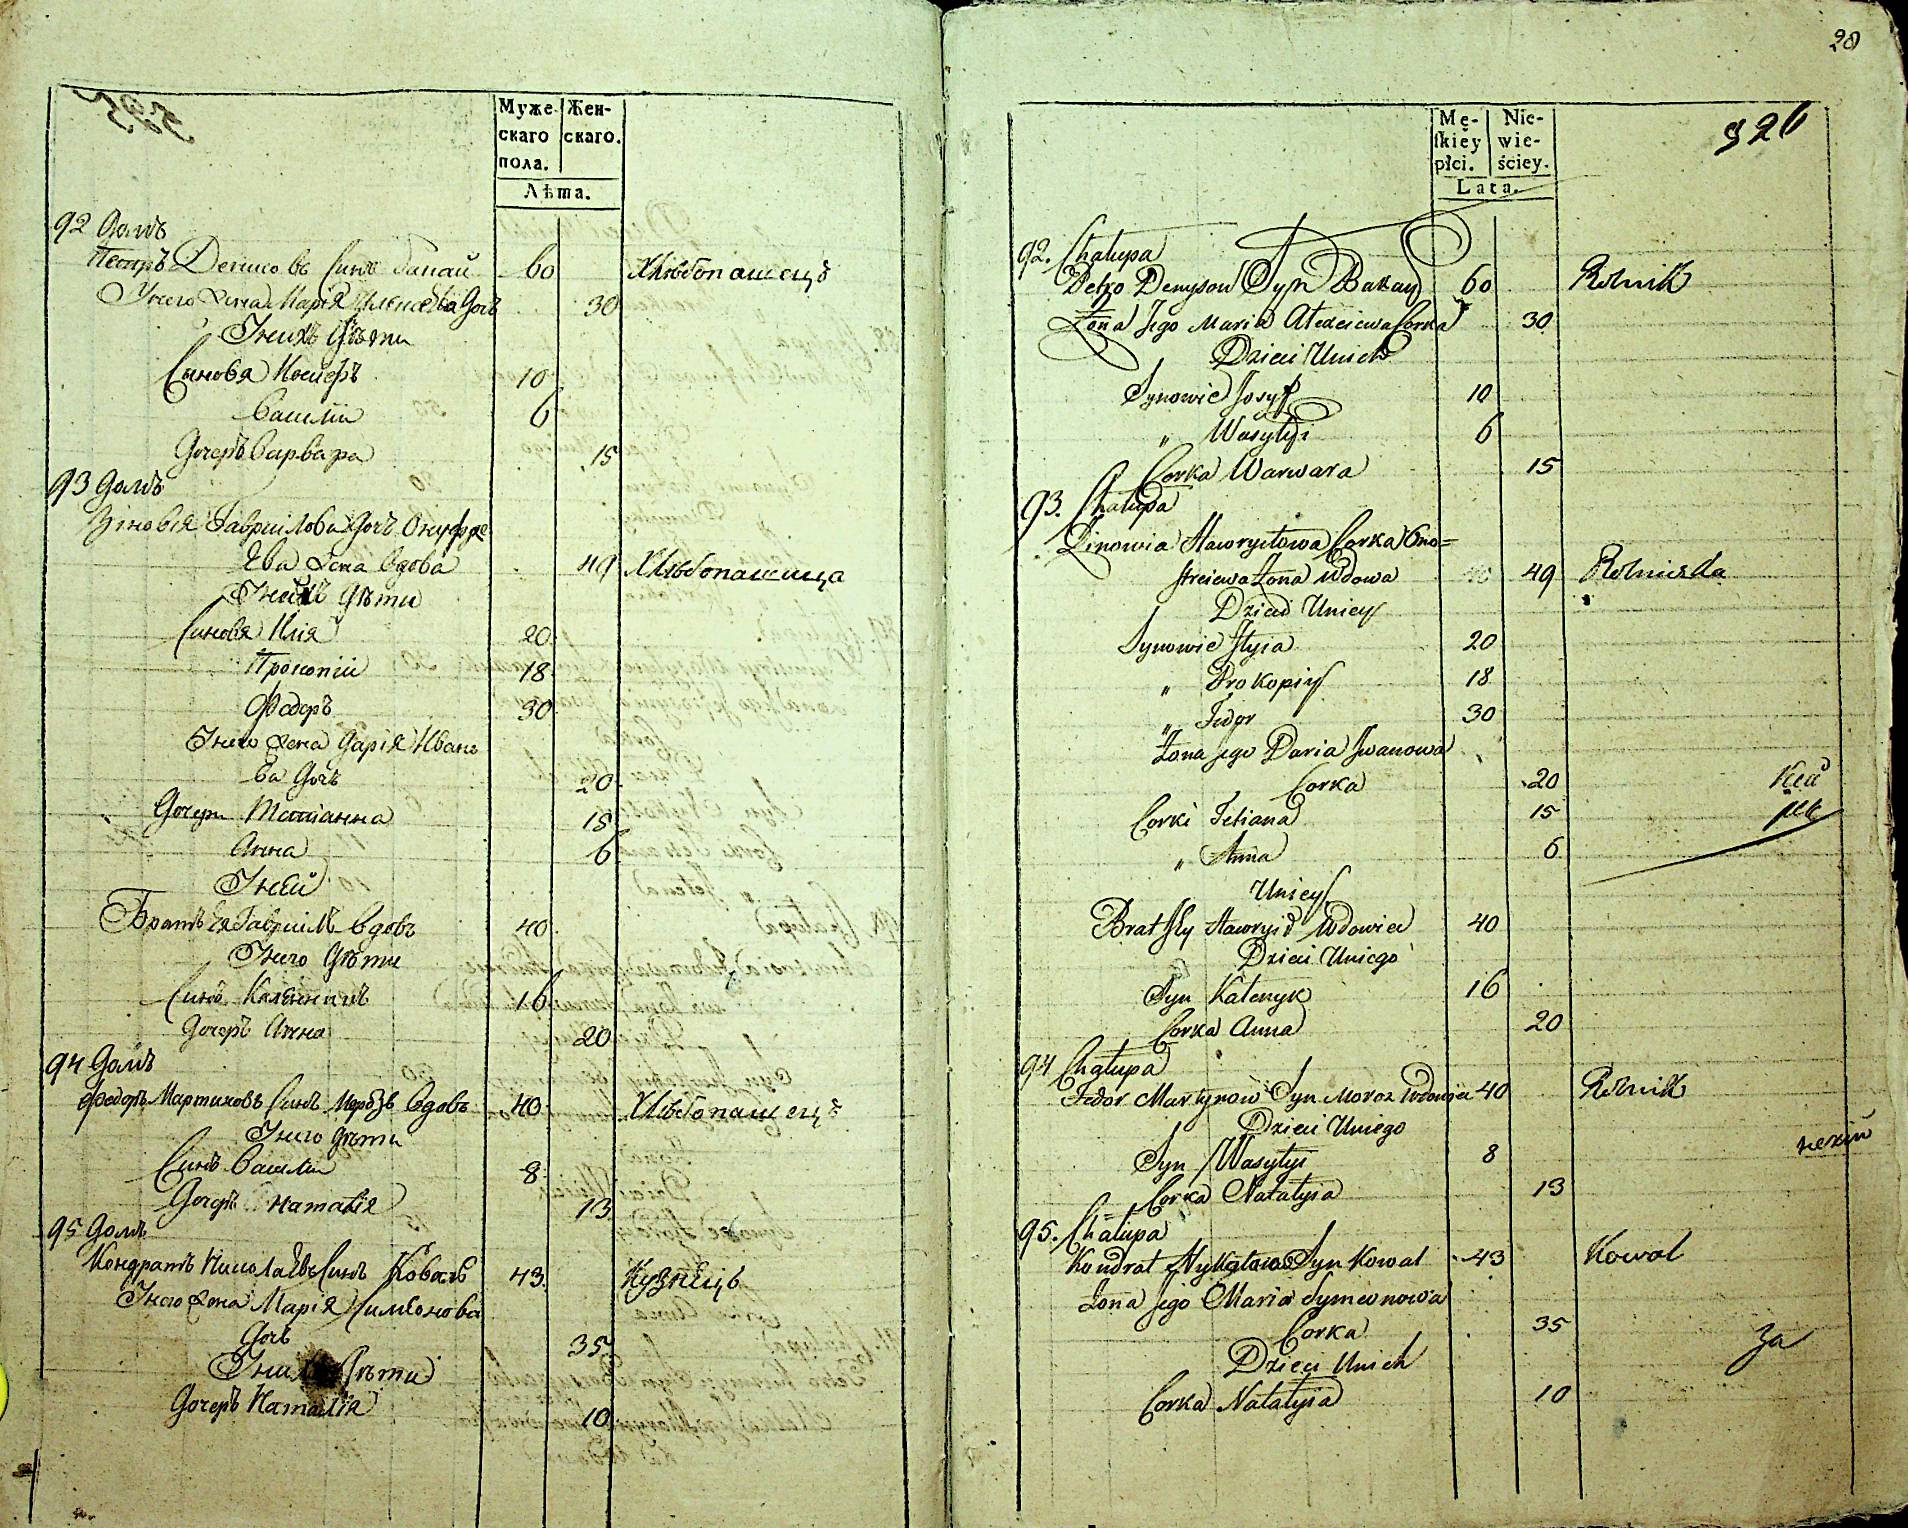 Муже-
скаго
пола.
Жен-
скаго.
Лѣта.
92 Домъ
Петръ Денисовъ Синъ Бакай 60 Хлѣбопашецъ
У него Жена Марія Алексѣева Дочь 30
У нихъ Дѣти
Синовя Иосифъ 10
Василій 6
Дочеръ Варвара 15
93 Домъ
Зѣновія Гавриілова Дочъ Онуфріе
ева Жена Вдова 49 Хлѣбопашица
У ней Дѣти
Синовя Илія 20
Прокопій 18
Федоръ 30
У него Жена Дарія Ивано
ва Дочъ 20
Дочери Татіанна 15
Анна 6
У ней
Братъ Ея Гавриілъ Вдовъ 40
У него Дѣти
Синъ Каленникъ 16
Дочеръ Анна 20
94 Домъ
Федоръ Мартиновъ Синъ Морозъ Вдовъ 40 Хлѣбопашецъ
У него Дѣти
Синъ Василій 8
Дочеръ Наталія 13
95 Домъ
Кондратъ Николаевъ Синъ Коваль 43 Кузнѣцъ
У него Жена Марія Симеонова
Дочъ 35
У нихъ Дѣти
Дочеръ Наталія 10
28
Mę-
ſkiéy
płci.
Nie-
wie-
ściey.
Lata.
326
92. Chałupa
Petro Denysow Syn Bakay 60 Rolnik
Żona Jego Maria Alexiewa Corka 30
Dzieci Unich
Synowie Josyf 10
" Wasylyi 6
Corka Warwara 15
93. Chałupa
Zinowia Hawryłowa Corka Ono=
freiewa Żona Wdowa 49 Rolniczka
Dzieci Uniey
Synowie Ilyia 20
" Prokopiy 18
" Fedor 30
Żona jego Daria Iwanowa
Corka 20
Corki Tetiana 15
" Anna 6
Uniey
Brat Jey Hawrył Wdowiec 40
Dzieci Uniego
Syn Kałenyk 16
Corka Anna 20
94 Chałupa
Fedor Martynow Syn Moroz Wdowiec 40 Rolnik
Dzieci Uniego
Syn Wasylyi 8
Corka Natalyia 13
95. Chałupa
Kondrat Nykołaiow Syn Kowal 43 Kowal
Żona jego Maria Symeonowa
Corka 35
За
Dzieci Unich
Corka Natalyia 10